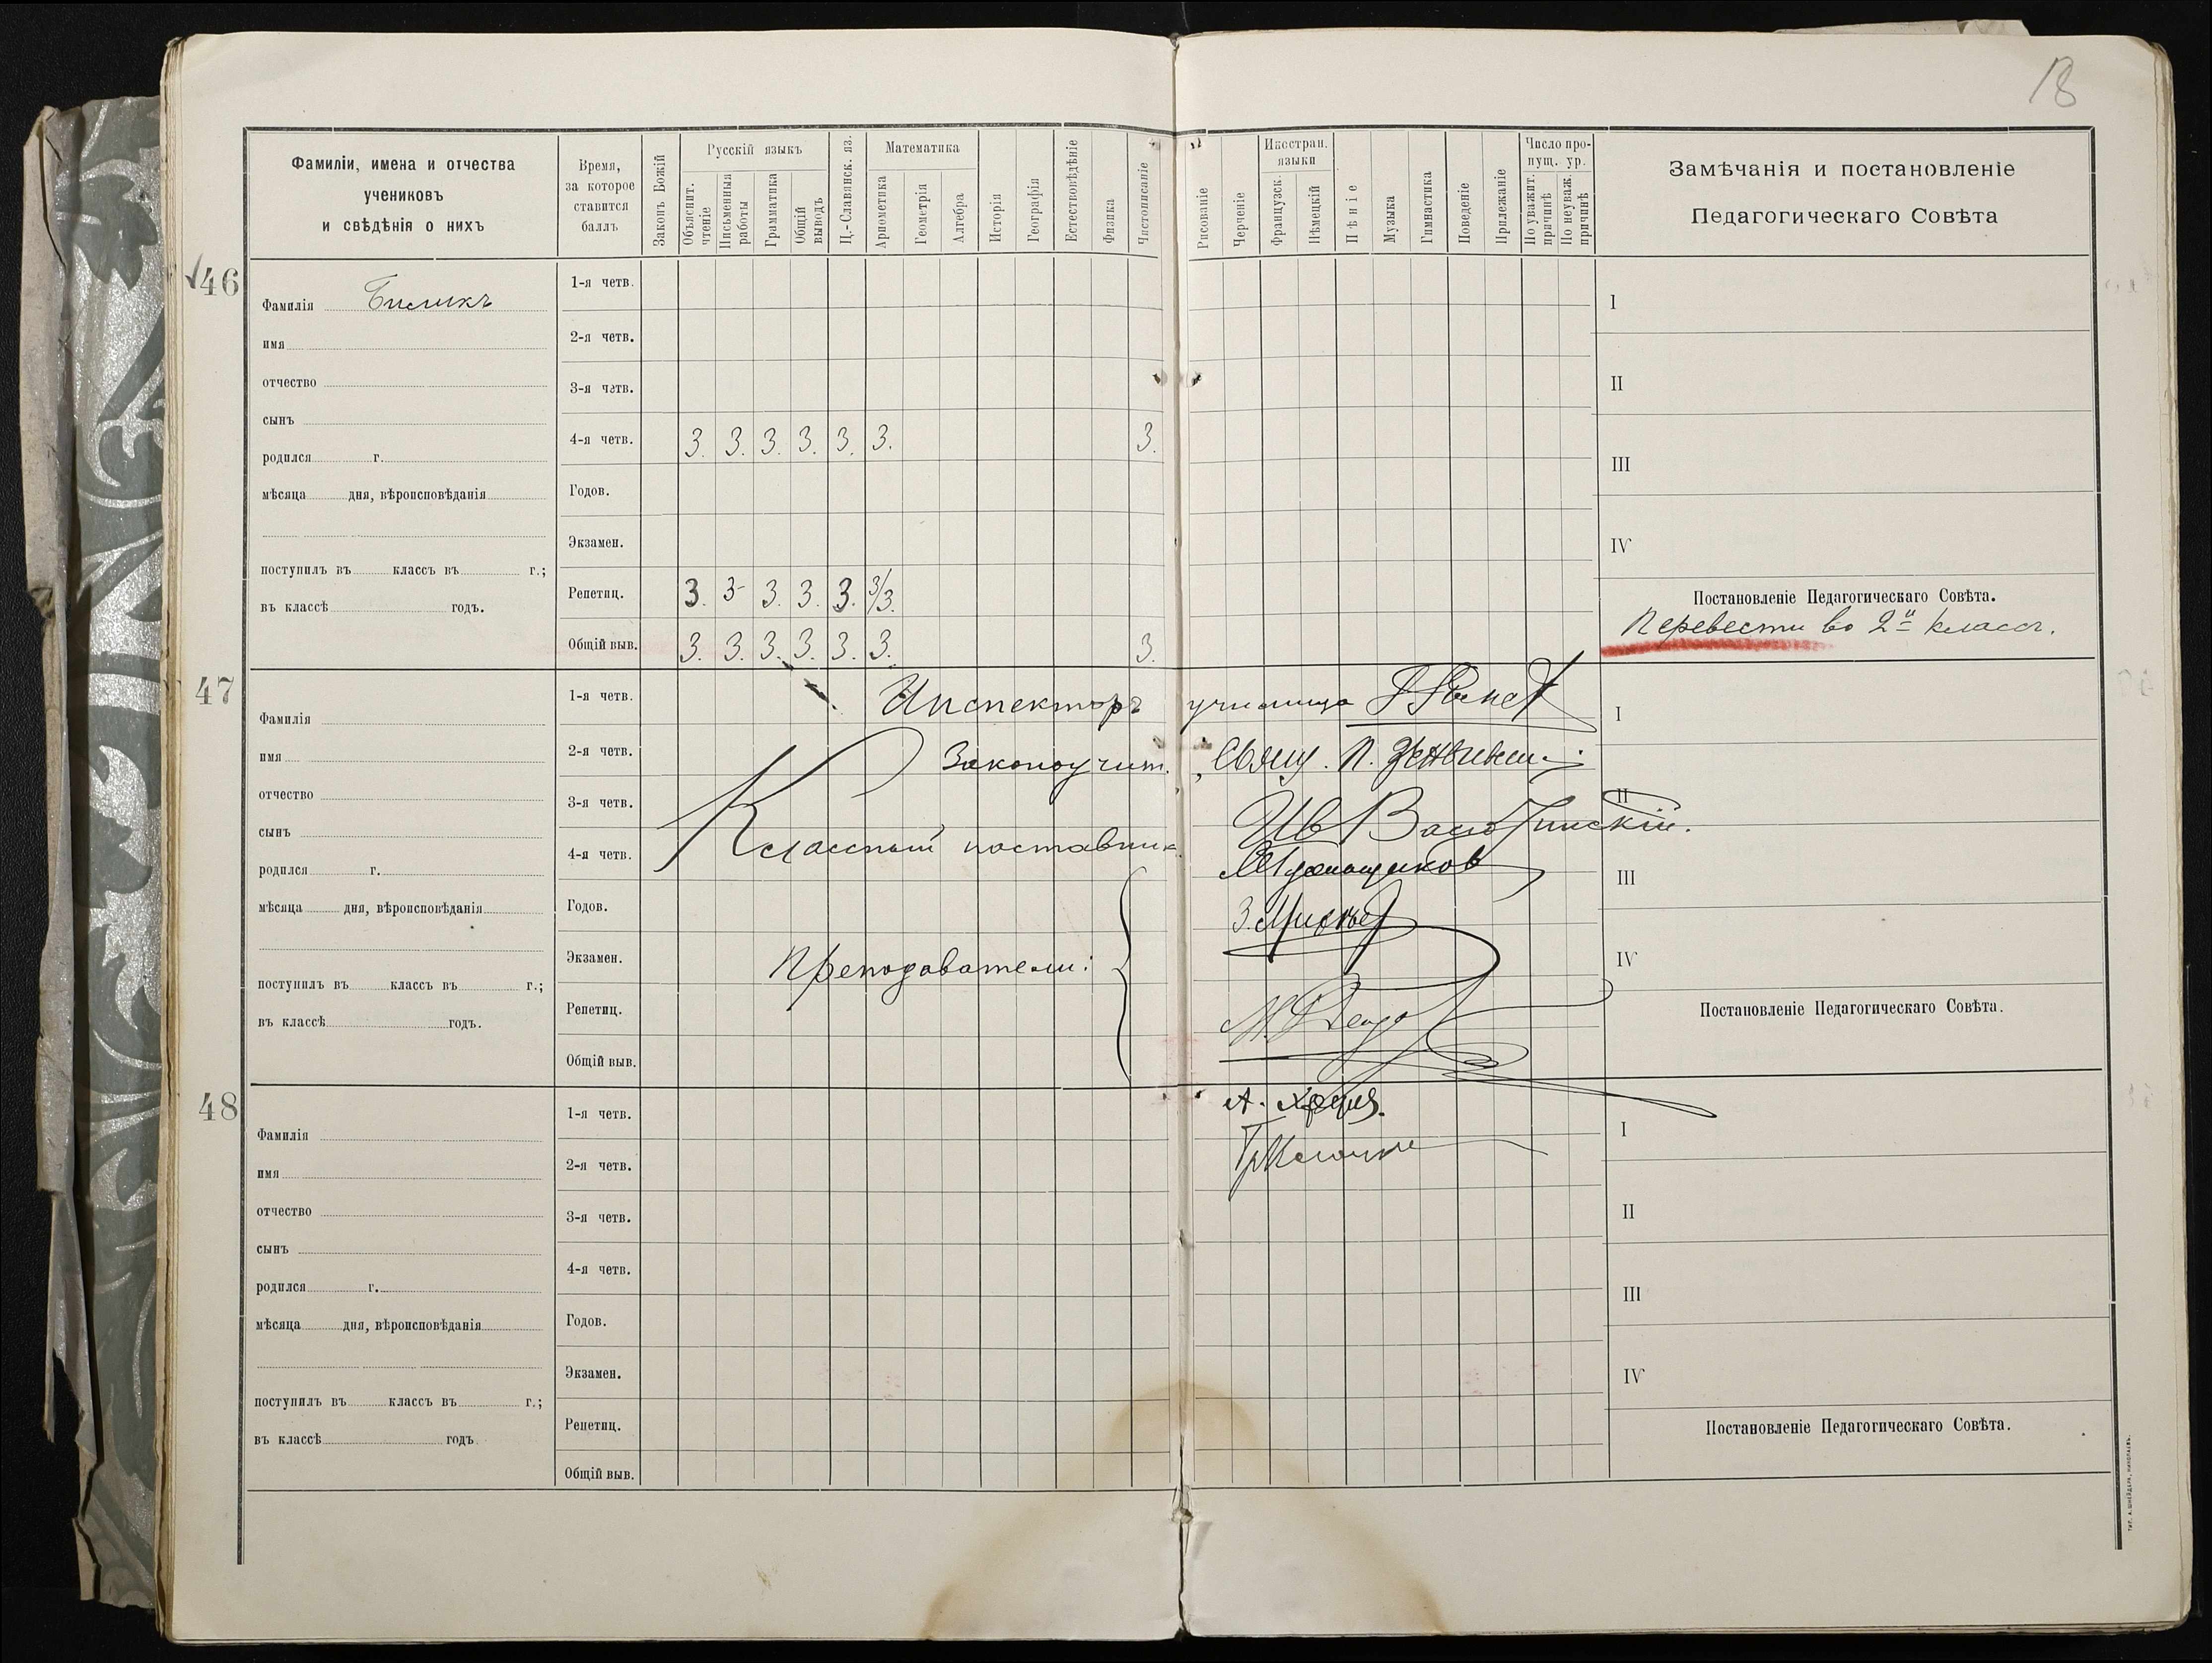 18
Фамиліи, имена и отчества
учениковъ
и свѣдѣнія о нихъ
Время,
за которое
ставится
баллъ
Законъ Божій
Русскій языкъ
Объяснит.
чтеніе
Письменныя
работы
Грамматика
Общій
выводъ
Ц.-Славянск. яз.
Математика
Ариѳметика
Геометрія
Алгебра
Исторія
Географія
Естествовѣдѣніе
Физика
Чистописаніе
Рисованіе
Черченіе
Иностран.
языки
Французск.
Нѣмецкій
Пѣніе
Музыка
Гимнастика
Поведеніе
Прилежаніе
Число про-
пущ. ур.
По уважит.
причинѣ
По неуваж.
причинѣ
Замѣчанія и постановленіе
Педагогическаго Совѣта
46
Фамилія Бисликъ
имя
отчество
сынъ
родился г.
мѣсяца дня, вѣроисповѣданія
поступилъ въ классъ въ г.;
въ классѣ годъ.
1-я четв.
2-я четв.
3-я четв.
4-я четв. 3. 3. 3. 3. 3. 3. 3.
Годов.
Экзамен.
Репетиц. 3. 3- 3. 3. 3. 3/3.
Общій выв. 3. 3. 3. 3. 3. 3. 3.
I
II
III
IV
Постановленіе Педагогическаго Совѣта.
Перевести во 2й классъ.
47
Фамилія
имя
отчество
сынъ
родился г.
мѣсяца дня, вѣроисповѣданія
поступилъ въ классъ въ г.;
въ классѣ годъ.
1-я четв.
2-я четв.
3-я четв.
4-я четв.
Годов.
Экзамен.
Репетиц.
Общій выв.
Инспекторъ училища
Законоучит. Свящ. П.
Классный наставник
Преподаватели:
I
II
III
IV
Постановленіе Педагогическаго Совѣта.
48
Фамилія
имя
отчество
сынъ
родился г.
мѣсяца дня, вѣроисповѣданія
поступилъ въ классъ въ г.;
въ классѣ годъ
1-я четв.
2-я четв.
3-я четв.
4-я четв.
Годов.
Экзамен.
Репетиц.
Общій выв.
А.
I
II
III
IV
Постановленіе Педагогическаго Совѣта.